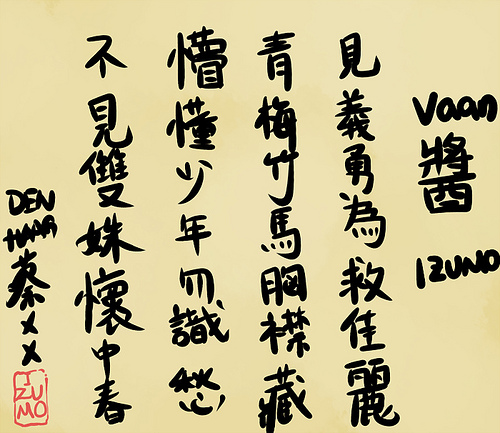 Vaan醬
IZUMO
見義勇為救佳麗
青梅竹馬胸襟藏
懵懂少年勿識愁
不見雙姝懷中春
DEN
HAAG
蔡xx
IZUMO